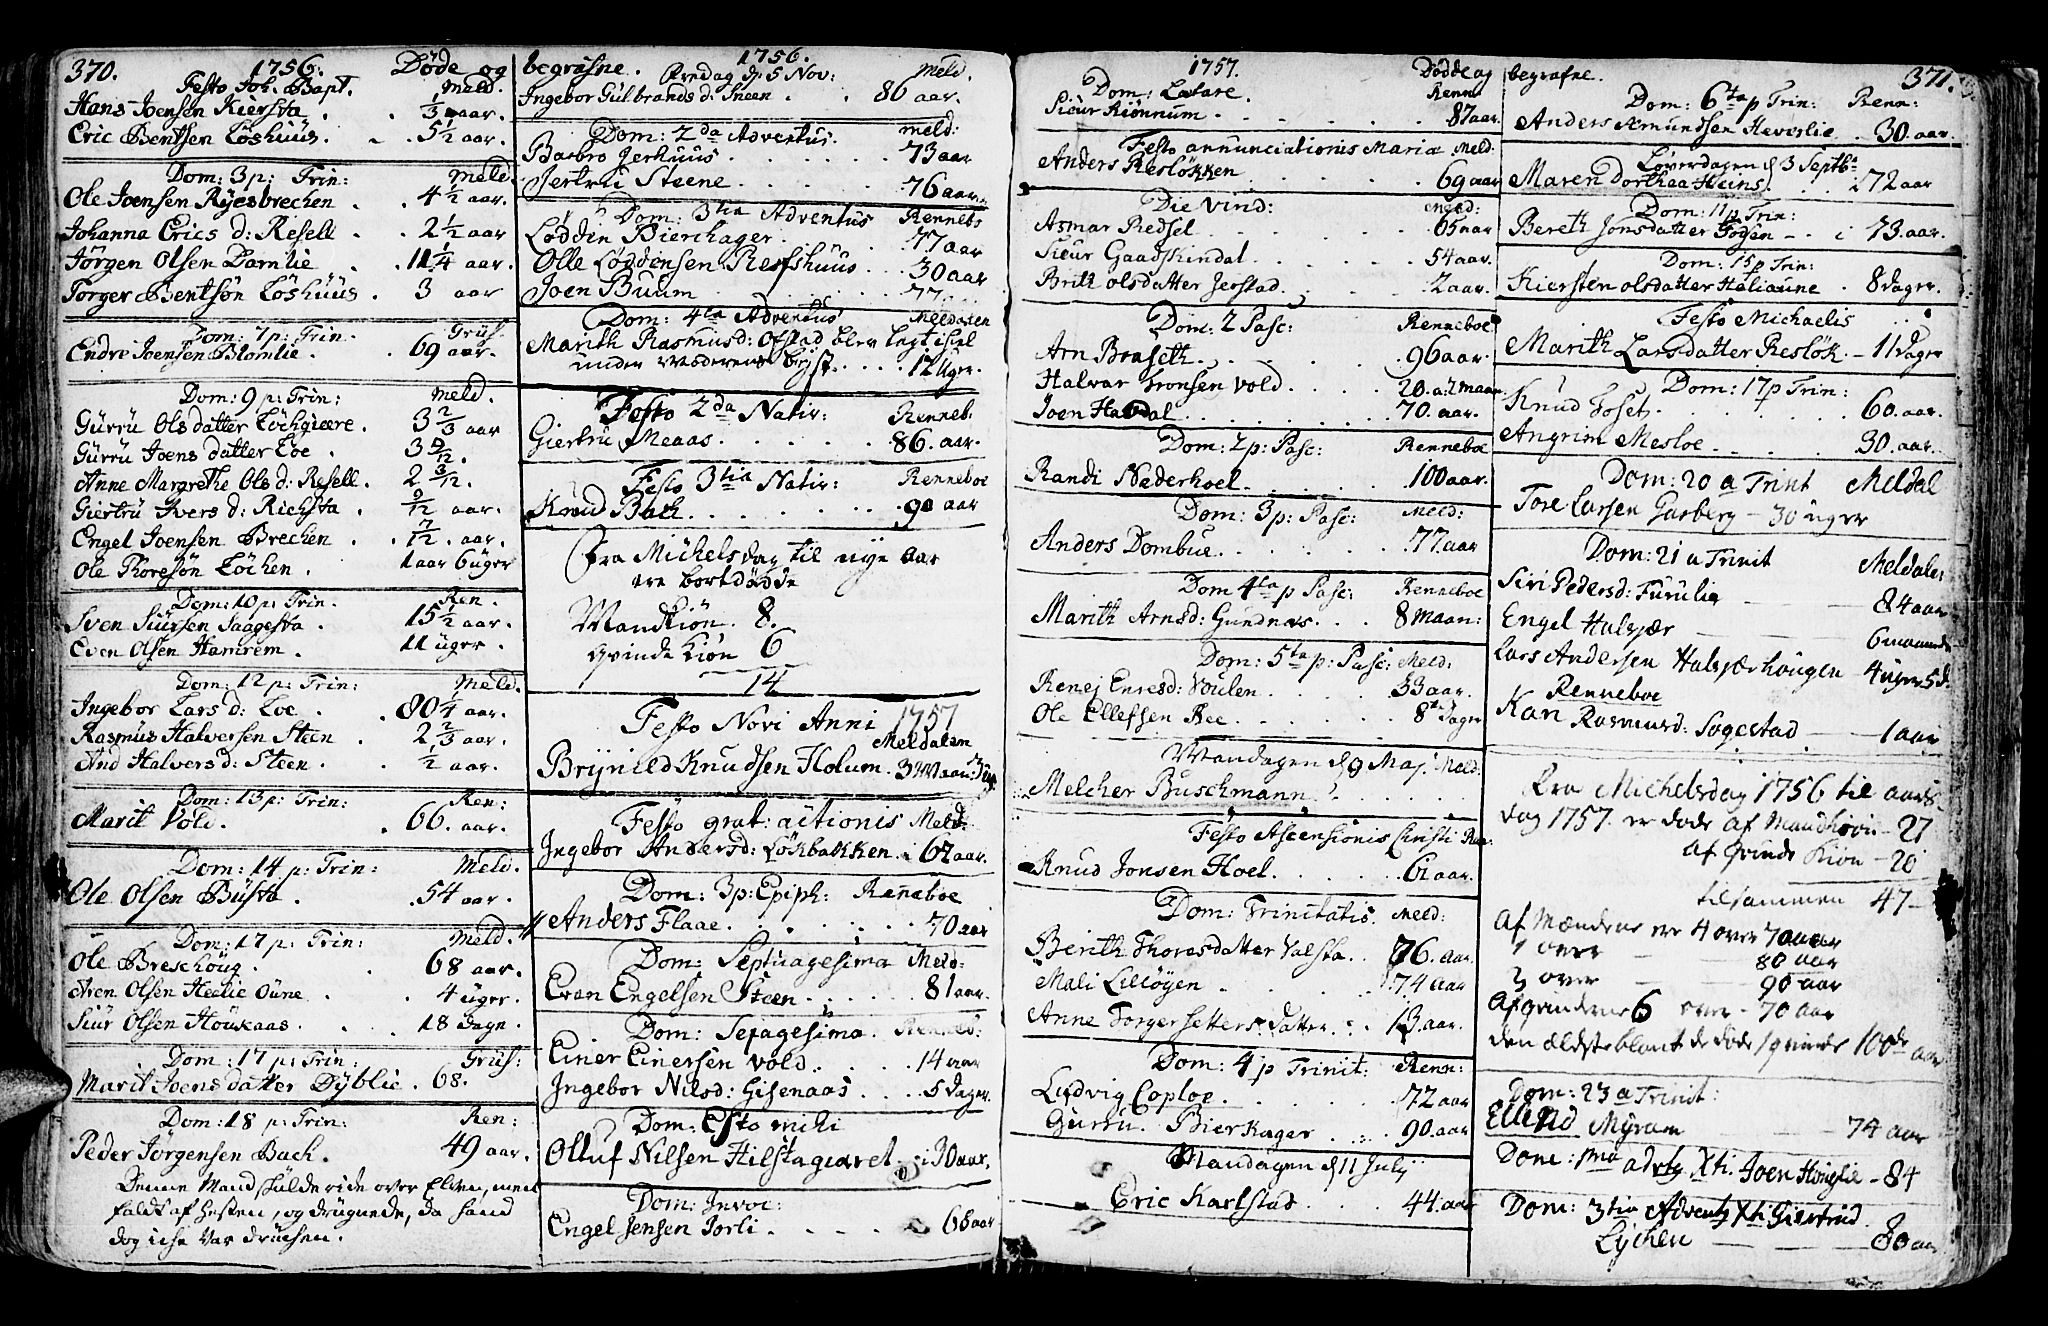 370. 1756. Døde og
Festo Joh. Bapt. Meld.
Hans Joensen Kiersta . . 1/3 aar.
Eric Bentsen Löshuus . . 5 1/2 aar.
Dom: 3 p: Trin: Meld.
Ole Joensen Ryesbrechen . . 4 1/2 aar.
Johanna Erics d: Resell . . 2 1/2 aar
Jörgen Olsen Damlie . . 11 1/4 aar.
Torger Bentsön Löshuus . 3 aar
Dom: 7 p: Trin: Grüs.
Endre Joensen Blomlie . . 69 aar.
Dom: 9 p: Trin: Meld.
Gürrü Olsdatter Löchgiære . 3 2/3 aar
Gürrü Joens datter Loe .
Anne Margrethe Ols d: Resell . 2 3/12.
Giertrü Ivers d: Kiersta . 9/12 aar.
Engel Joensen Brechen . . 7/12 . aar.
Ole Thoresön Löchen . 1 aar 6 uger
Dom: 10 p: Trin. Ren.
Sven Siursen Saagesta . 15 1/2 aar.
Even Olsen Hamrem . 11 üger.
Dom: 12 p: Trin: Meld.
Ingebor Lars d: Loe . . 80 1/4 aar.
Rasmüs Halversen Steen . 2 2/3 aar.
And Halvers d: Steen . . 1/2 aar.
Dom: 13 p: Trin: Ren:
Marit Vold . . 66. aar.
Dom: 14 p: Trin: Meld.
Ole Olsen Büsta . . 54 aar.
Dom: 17 p: Trin: Meld.
Ole Breschöug . 68 aar.
Aren Olsen Heelie Oüne . . 4 üger.
Siür Olsen Houkaas . . . 18 Dage.
Dom: 17 p: Trin: Grüs:
Marit Joens datter Dyblie . 68.
Dom: 18 p: Trin: Ren:
Peder Jörgensen Bach . 49 aar.
Denne Mand skulde ride over Elven, men
faldt af hesten, og drügnede, da hand
dog icke var drüchen.
begrafne. 1756.
Fredag d. 5 Nov: Meld.
Ingebor Gulbrands d: Sneen . . 86 aar.
Dom: 2da Adventus. Meld:
Barbro Jerhuus . . . 73 aar
Jertru Steene . . . 76 aar.
Dom: 3tia Adventus Rennebo
Lodden Bierchager . . 77 aar
Olle Loddensen Resshuus . . 30 aar
Joen Buum . . 77
Dom: 4ta Adventus Meldalen
Marith Rasmusd: Ofstad blev lagt ihiel
under Moderens bryst . . . 12 Uger.
Festo 2da Nativ: Renneb.
Giertru Meaas . . . 86. aar.
Festo 3tia Nativ: Renneboe
Knud Bach . . . 90 aar
Fra Michelsdag til nye aar
ere bortdøde
Mandkiön . 8.
Qvindekiön 6
14
Festo Novi Anni 1757
Meldalen
Brynild Knudsen Holum . 3 Maan: 3 Uger
Festo grat: actionis Meld:
Ingebor Andersd: Løkbakken . 62 aar.
Dom: 3 p: Epiph: Renneboe
Anders Flaae . . . 70 aar
Dom: Septuagesima Meld:
Even Engelsen Steen . . . 81 aar.
Dom: Sexagesima. Renneb:
Einer Einersen Vold . . . 14 aar
Ingebor Nilsd: Gisenaas . . 5 Dager.
Dom: Esto mihi
Olluf Nilsen Hilstagiæret . 30 aar.
Dom: Invoc:
Engel Jensen Jorli . . . 68 aar
1757. Dødde og
Dom: Lætare. Renne
Sieur Riønnum . . . 87 aar
Festo annunciationis Mariæ Meld:
Anders Resløkken . . . 69 aar
Die Virid: Meld:
Asmar Redsel . . . 65 aar
Sieur Gaadskindal . . . 54 aar.
Brith olsdatter Jerstad . . 2 aar.
Dom: 2 Pasc: Renneboe
Arn Braseth . . . 96 aar.
Halvar Tronsen Vold . . . 20. a: 2 maan
Joen Havdal . . . 70. aar.
Dom: 2 p: Pasc: Renneboe
Randi Nederhoel . . . 100 aar.
Dom: 3 p: Pasc: Meld:
Anders Dombue . . . 77. aar
Dom 4ta p Pasc: Renneboe
Marith Arnsd: Gundnæs . . . 8 Maan:
Dom: 5ta p: Pasc: Meld:
Renej Enresd: Voulen . . . 33 aar.
Ole Ellefsen Bee . . . 8 Dager
Mandagen d 9 Maj. Meld:
Melcher Buschmann . . .
Festo Ascensionis Christi Ren:
Knud Jonsen Hoel . . . 61 aar.
Dom: Trinitatis. Meld:
Berith Thoresdatter Valsta . . 76. aar.
Mali Lilløyen . . . 74 aar
Anne Torgersetters datter . . 13. aar.
Dom: 4 p Trinit: Renn:
Ludvig Coploe . . . 72 aar
Gurru. Bierkager . . . 90. aar.
Mandagen d 11 July
Eric Karlstad . . . 44. aar
begrafne. 371.
Dom: 6ta p Trin: Renn:
Anders Amundsen Heverlie . 30. aar.
Løverdagen d 3 Septb
Maren Dorthea Heins . . . 72 aar
Dom: 11 p Trin:
Bereth Jonsdatter Fogen - . 73. aar.
Dom: 15 p Trin:
Kiersten olsdatter Halianne . 8 Dager.
Festo Michaelis
Marith Larsdatter Resløk . - 11 Dager
Dom: 17 p Trin:
Knud Foset . . . 60. aar.
Angrim Mesloe . . . 30. aar.
Dom: 20 a Trinit Meldal
Tore Larsen Garberg - 30 uger
Dom: 21 a Trinit Meldale:
Siri Pedersd: Furulie - 84 aar
Engel Halsjær - 6 maaneder
Lars Andersen Halsjærhougen - 4 uger 5 d.
Renneboe
Kari Rasmusd: Sogestad - 1 aar
Fra Michelsdag 1756 til aars-
dag 1757. er døde af Mandkiön - 27
af Qvinde Kiön - 20
tilsammen 47 -
Af Mændene ere 4 over 70 aar
1 over - 80 aar
3 over - 90 aar
Af qvinderne 6 over - 70 aar
den ældste blant de døde qvinde 100de aar
Dom: 23 a Trinit:
Ellend Myram - 74 aar
Dom: 1ma advtg Xti. Joen Houglie - 84
Dom: 3tia Adventg Xti Giertrud
Lychen - 80 aar